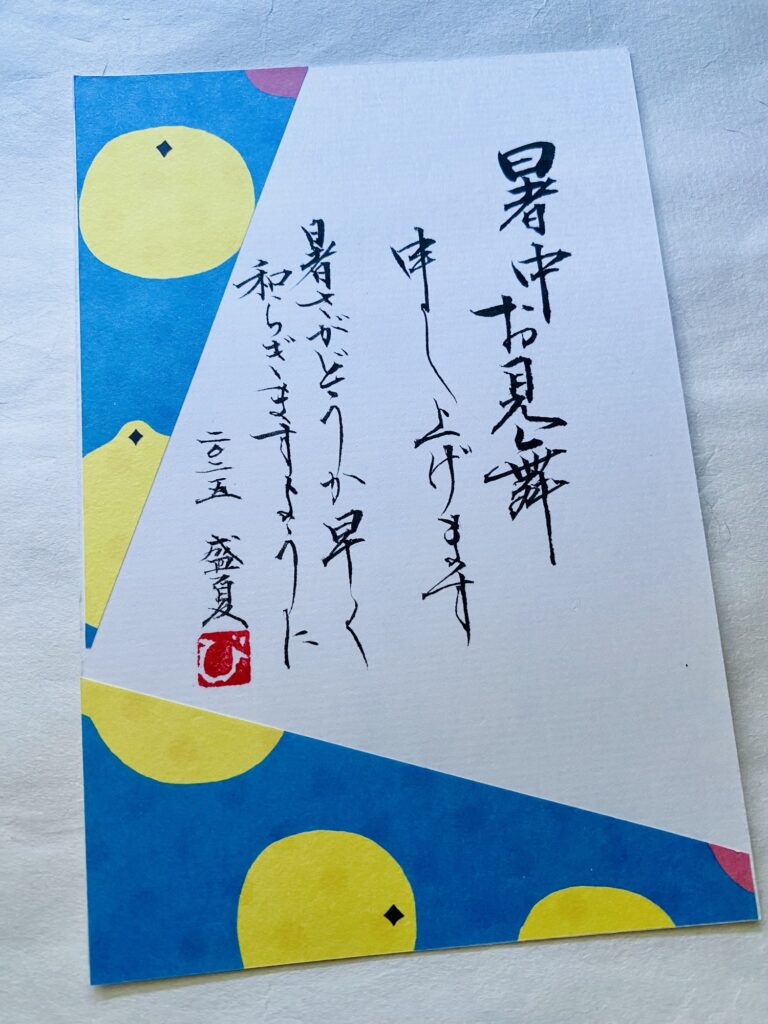 暑中お見舞
申し上げます
暑さがどうか早く
和らぎますように
二〇二五 盛夏
び